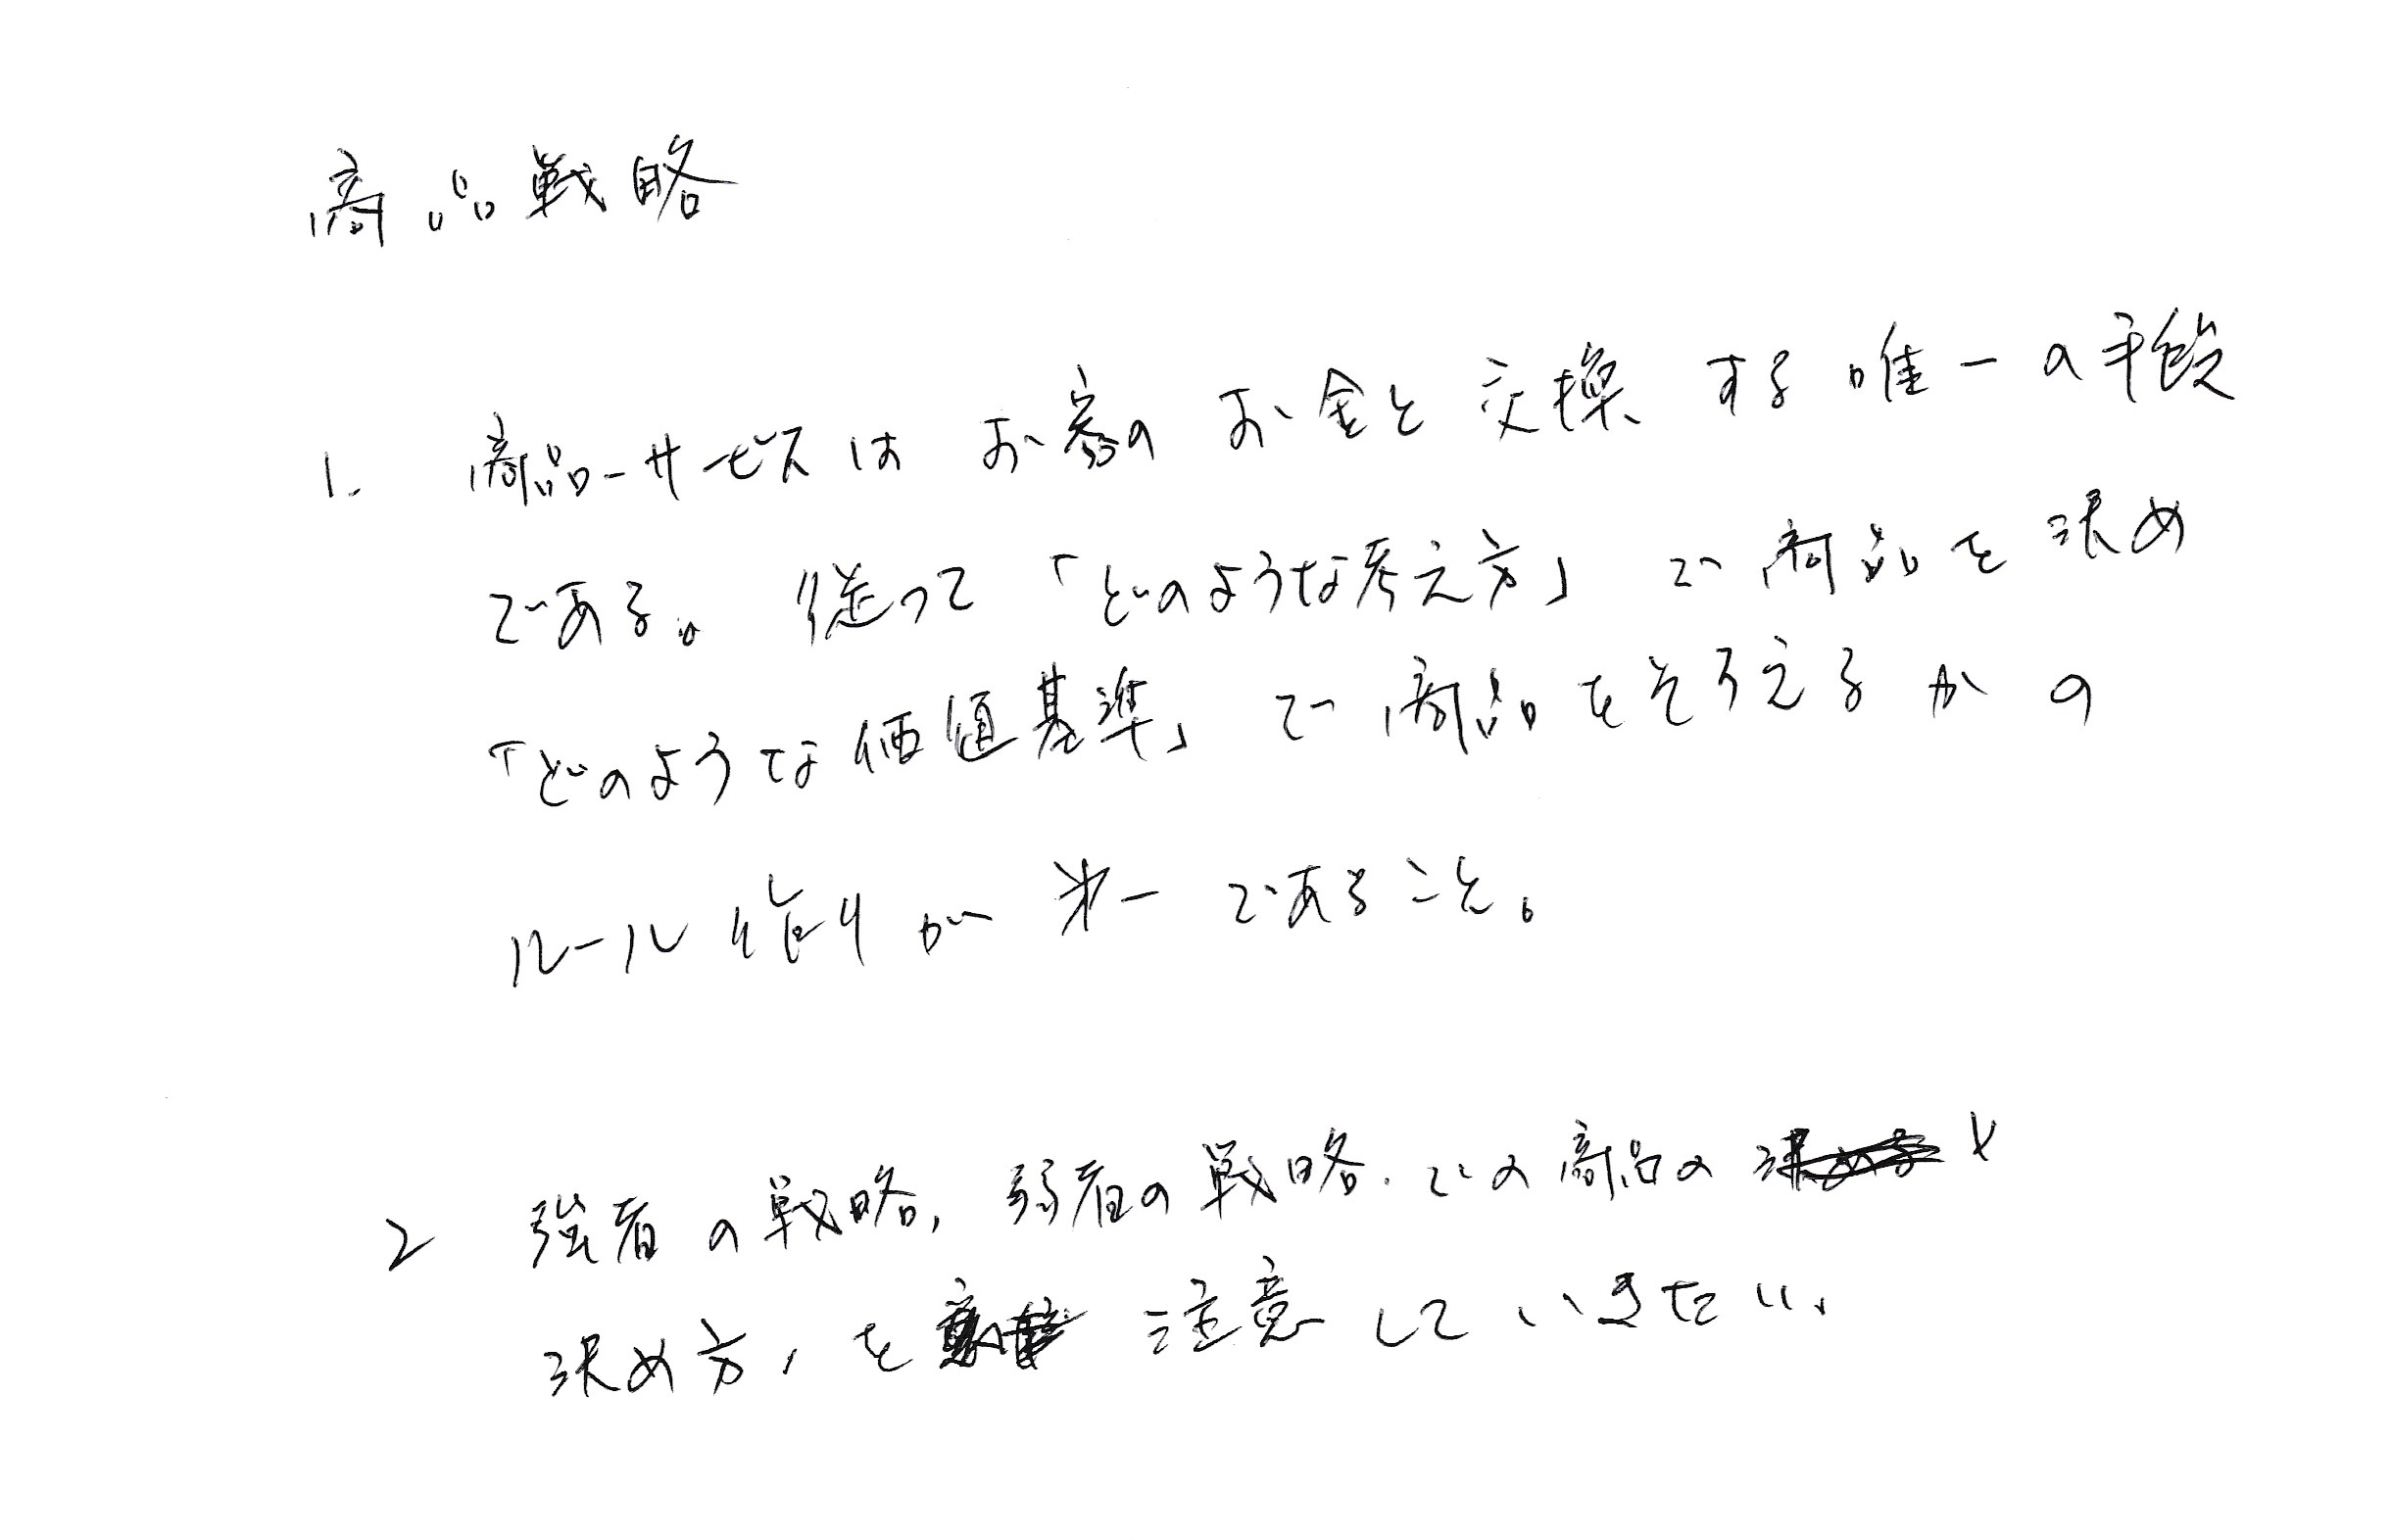 商品戦略
1. 商品-サービスは お客の お金と 交換 する 唯一の手段
である。 従って「どのような考え方」で 商品を決め
「どのような価値基準」で 商品をそろえるかの
ルール作りが 第一であること。
2 強者の戦略, 弱者の戦略. での商品の
決め方, を 注意していきたい.